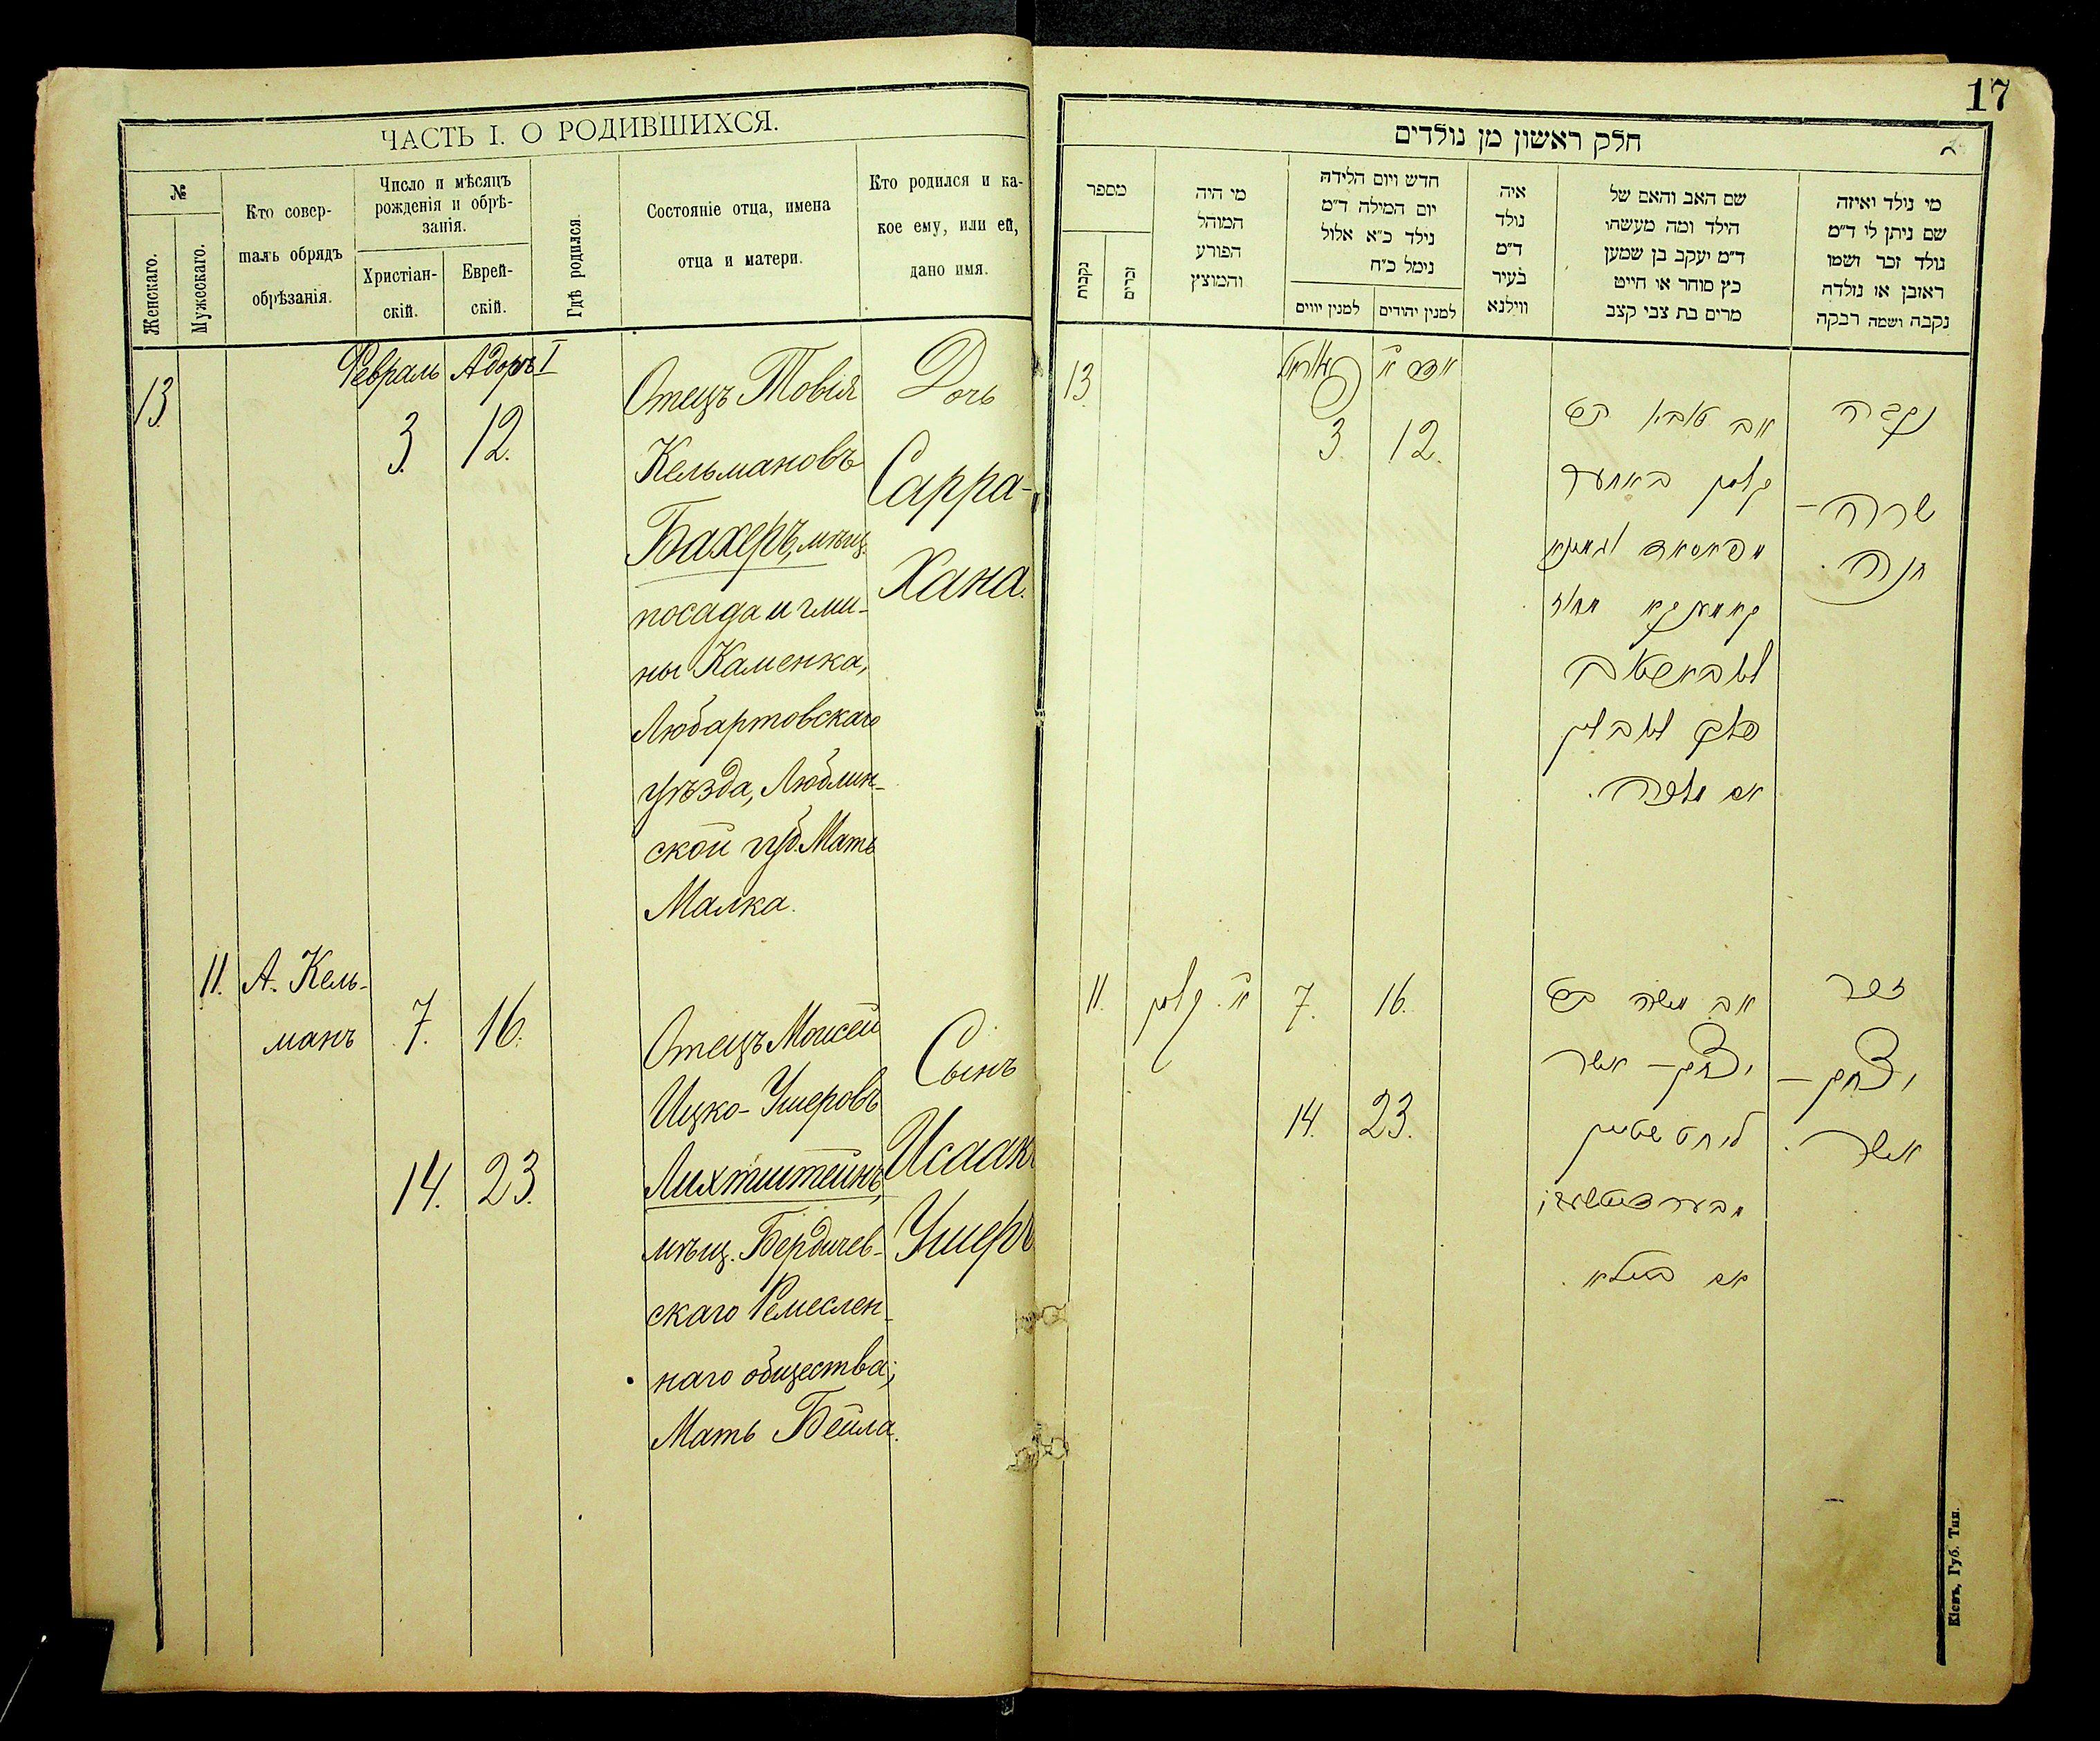 17
ЧАСТЬ I. О РОДИВШИХСЯ.
№
Женскаго.
Мужескаго.
Кто совер-
шалъ обрядъ
обрѣзанія.
Число и мѣсяцъ
рожденія и обрѣ-
занія.
Христіан-
скій.
Еврей-
скій.
Гдѣ родился.
Состояніе отца, имена
отца и матери.
Кто родился и ка-
кое ему, или ей,
дано имя.
Февраль Адоръ I
13
3. 12.
Отецъ Товія
Кельмановъ
Бахеръ, мѣщ.
посада и гми-
ны Каменка,
Любартовскаго
уѣзда, Люблин-
ской губ. Мать
Малка.
Дочь
Сарра-
Хана.
11. А. Кель-
манъ
7. 16.
14. 23.
Отецъ Моисей
Ицко-Ушеровъ
Лихтштейнъ,
мѣщ. Бердичев-
скаго Ремеслен-
наго общества;
Мать Бейла.
Сынъ
Исаакъ
Ушеръ
חלק ראשון מן נולדים
מספר
נקבות
זכרים
מי היה
המוהל
הפורע
והמוצץ
חדש ויום הלידה
יום המילה ד״מ
נילד כ״א אלול
נימל כ״ח
למנין יווים
למנין יהודים
איה
נולד
ד״מ
בעיר
ווילנא
שם האב והאם של
הילד ומה מעשהו
ד״מ יעקב בן שמען
כץ סוחר או חייט
מרים בת צבי קצב
מי נולד ואיזה
שם ניתן לו ד״מ
נולד זכר ושמו
ראובן או נולדה
נקבה ושמה רבקה
13
אדר א׳
3. 12.
אב טובא
קלמן באחער
קאמענקא
לובארטאוו
פלך לובלין
אם מלכה.
נקבה
שרה-
חנה.
11. א׳. קלמן
7. 16.
14. 23.
אב משה
יצחק-אשר
ליחטשטיין
אם ביילא.
זכר
יצחק-
אשר.
Кіевъ, Губ. Тип.